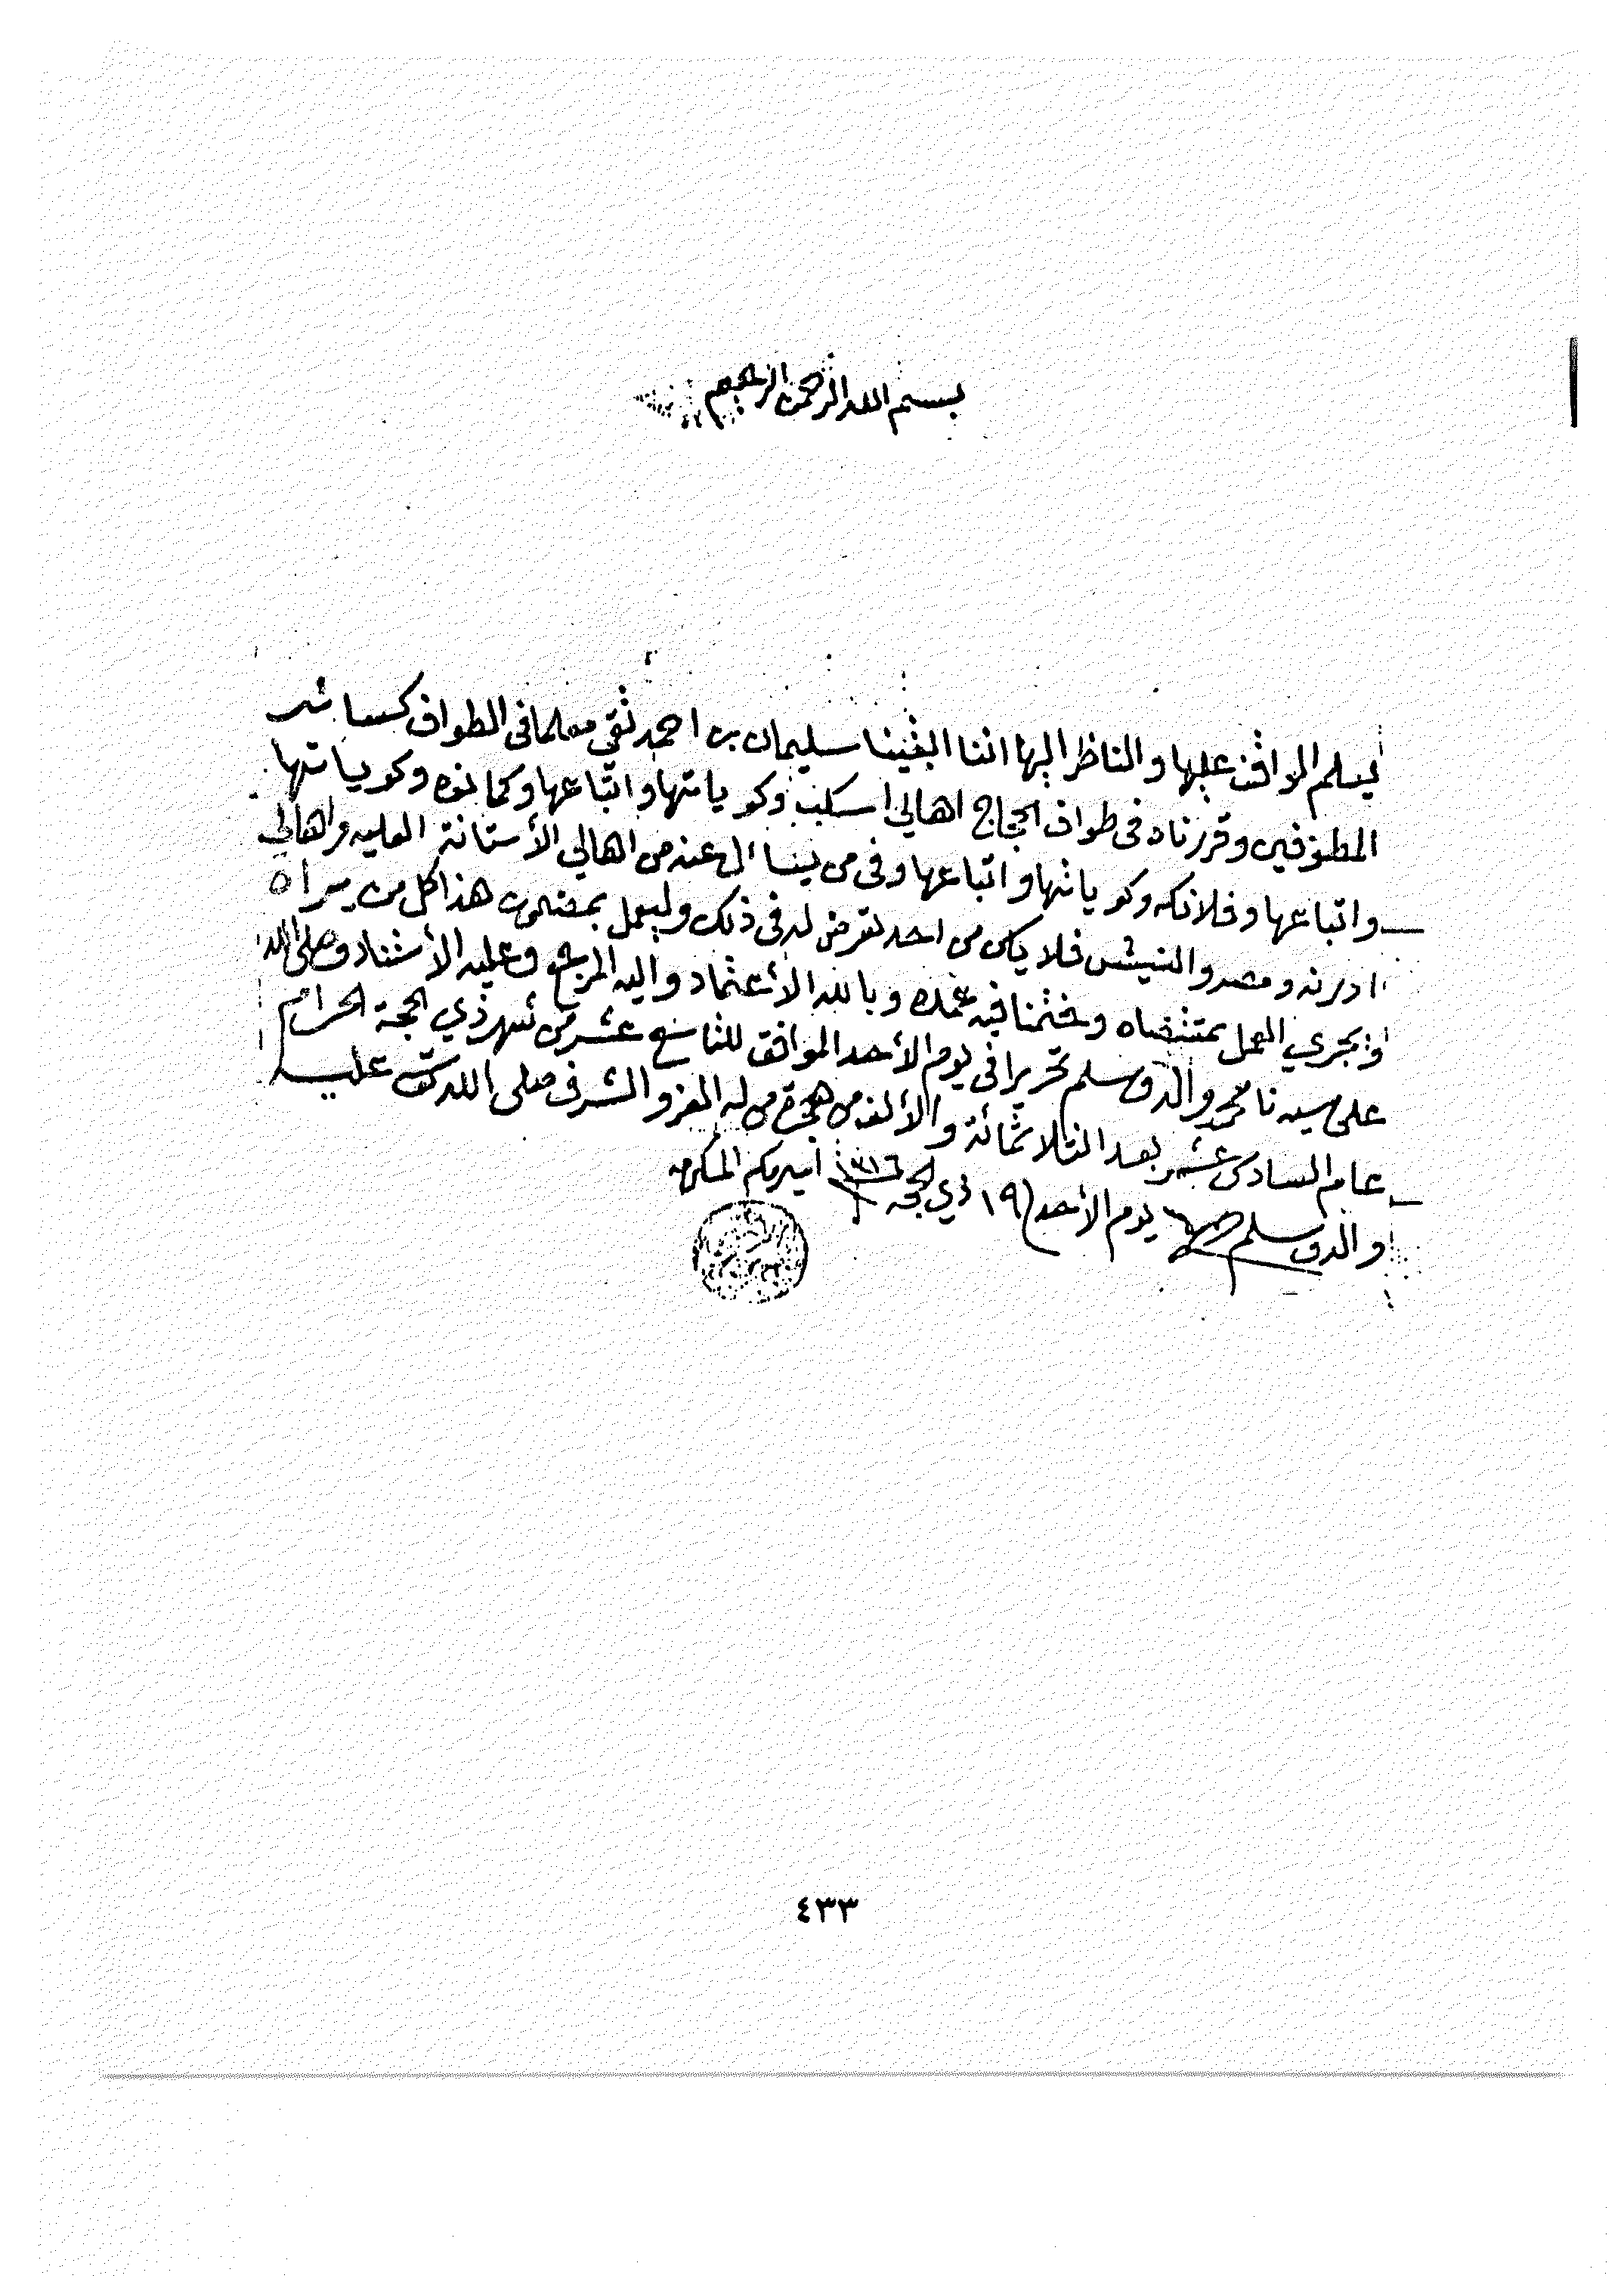 بسم الله الرحمن الرحيم
ليعلم الواقف عليها والناظر اليها اننا ابقينا سليمان بن احمد تقي معلما في الطواف كسائر
المطوفين وقررناه في طواف الحجاج اهالي اسكلب وكوياتها واتباعها وكمانوه وكوياتها
واتباعها وفلانكه وكوياتها واتباعها وفي من يسأل عنه من اهالي الأستانة العليه واهالي
ادرنه ومصر والنيش فلا يكن من احد تعرض له في ذلك وليعمل بمضمون هذا كل من يراه
ويجري العمل بمقتضاه وختمنا فيه عمده وبالله الأعتماد واليه المرجع وعليه الأستناد وصلى الله
على سيدنا محمد واله وسلم تحريرا في يوم الأحد الموافق للتاسع عشر من شهر ذي الحجة الحرام
عام السادس عشر بعد الثلاثمائة والألف من هجرة من له العز والشرف صلى الله عليه
واله وسلم يوم الأحد ١٩ ذي الحجه ١٣١٦ امير مكة المكرمه
٤٣٣